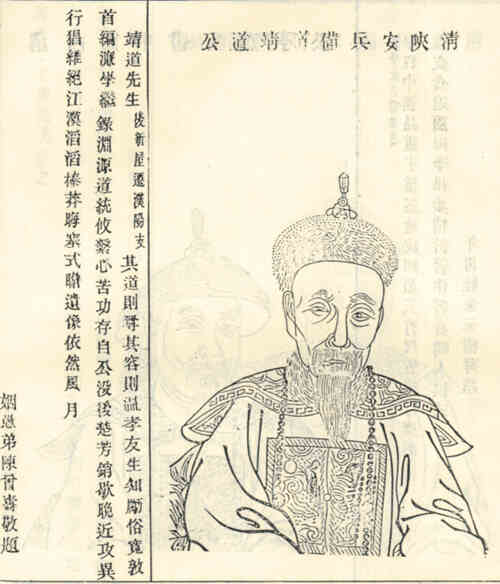 清陝安兵備靖道公
靖道先生 新屋遷漢陽支 其道則尊其容則溫孝友生知勵俗寬敦
首編濂學繼錄淵源道統攸繫心苦功存自公沒後楚芳歇晚近攻異
行猖維絕江漢滔滔榛莽晦塞式瞻遺像依然風月
姻愚弟陳曾壽敬題